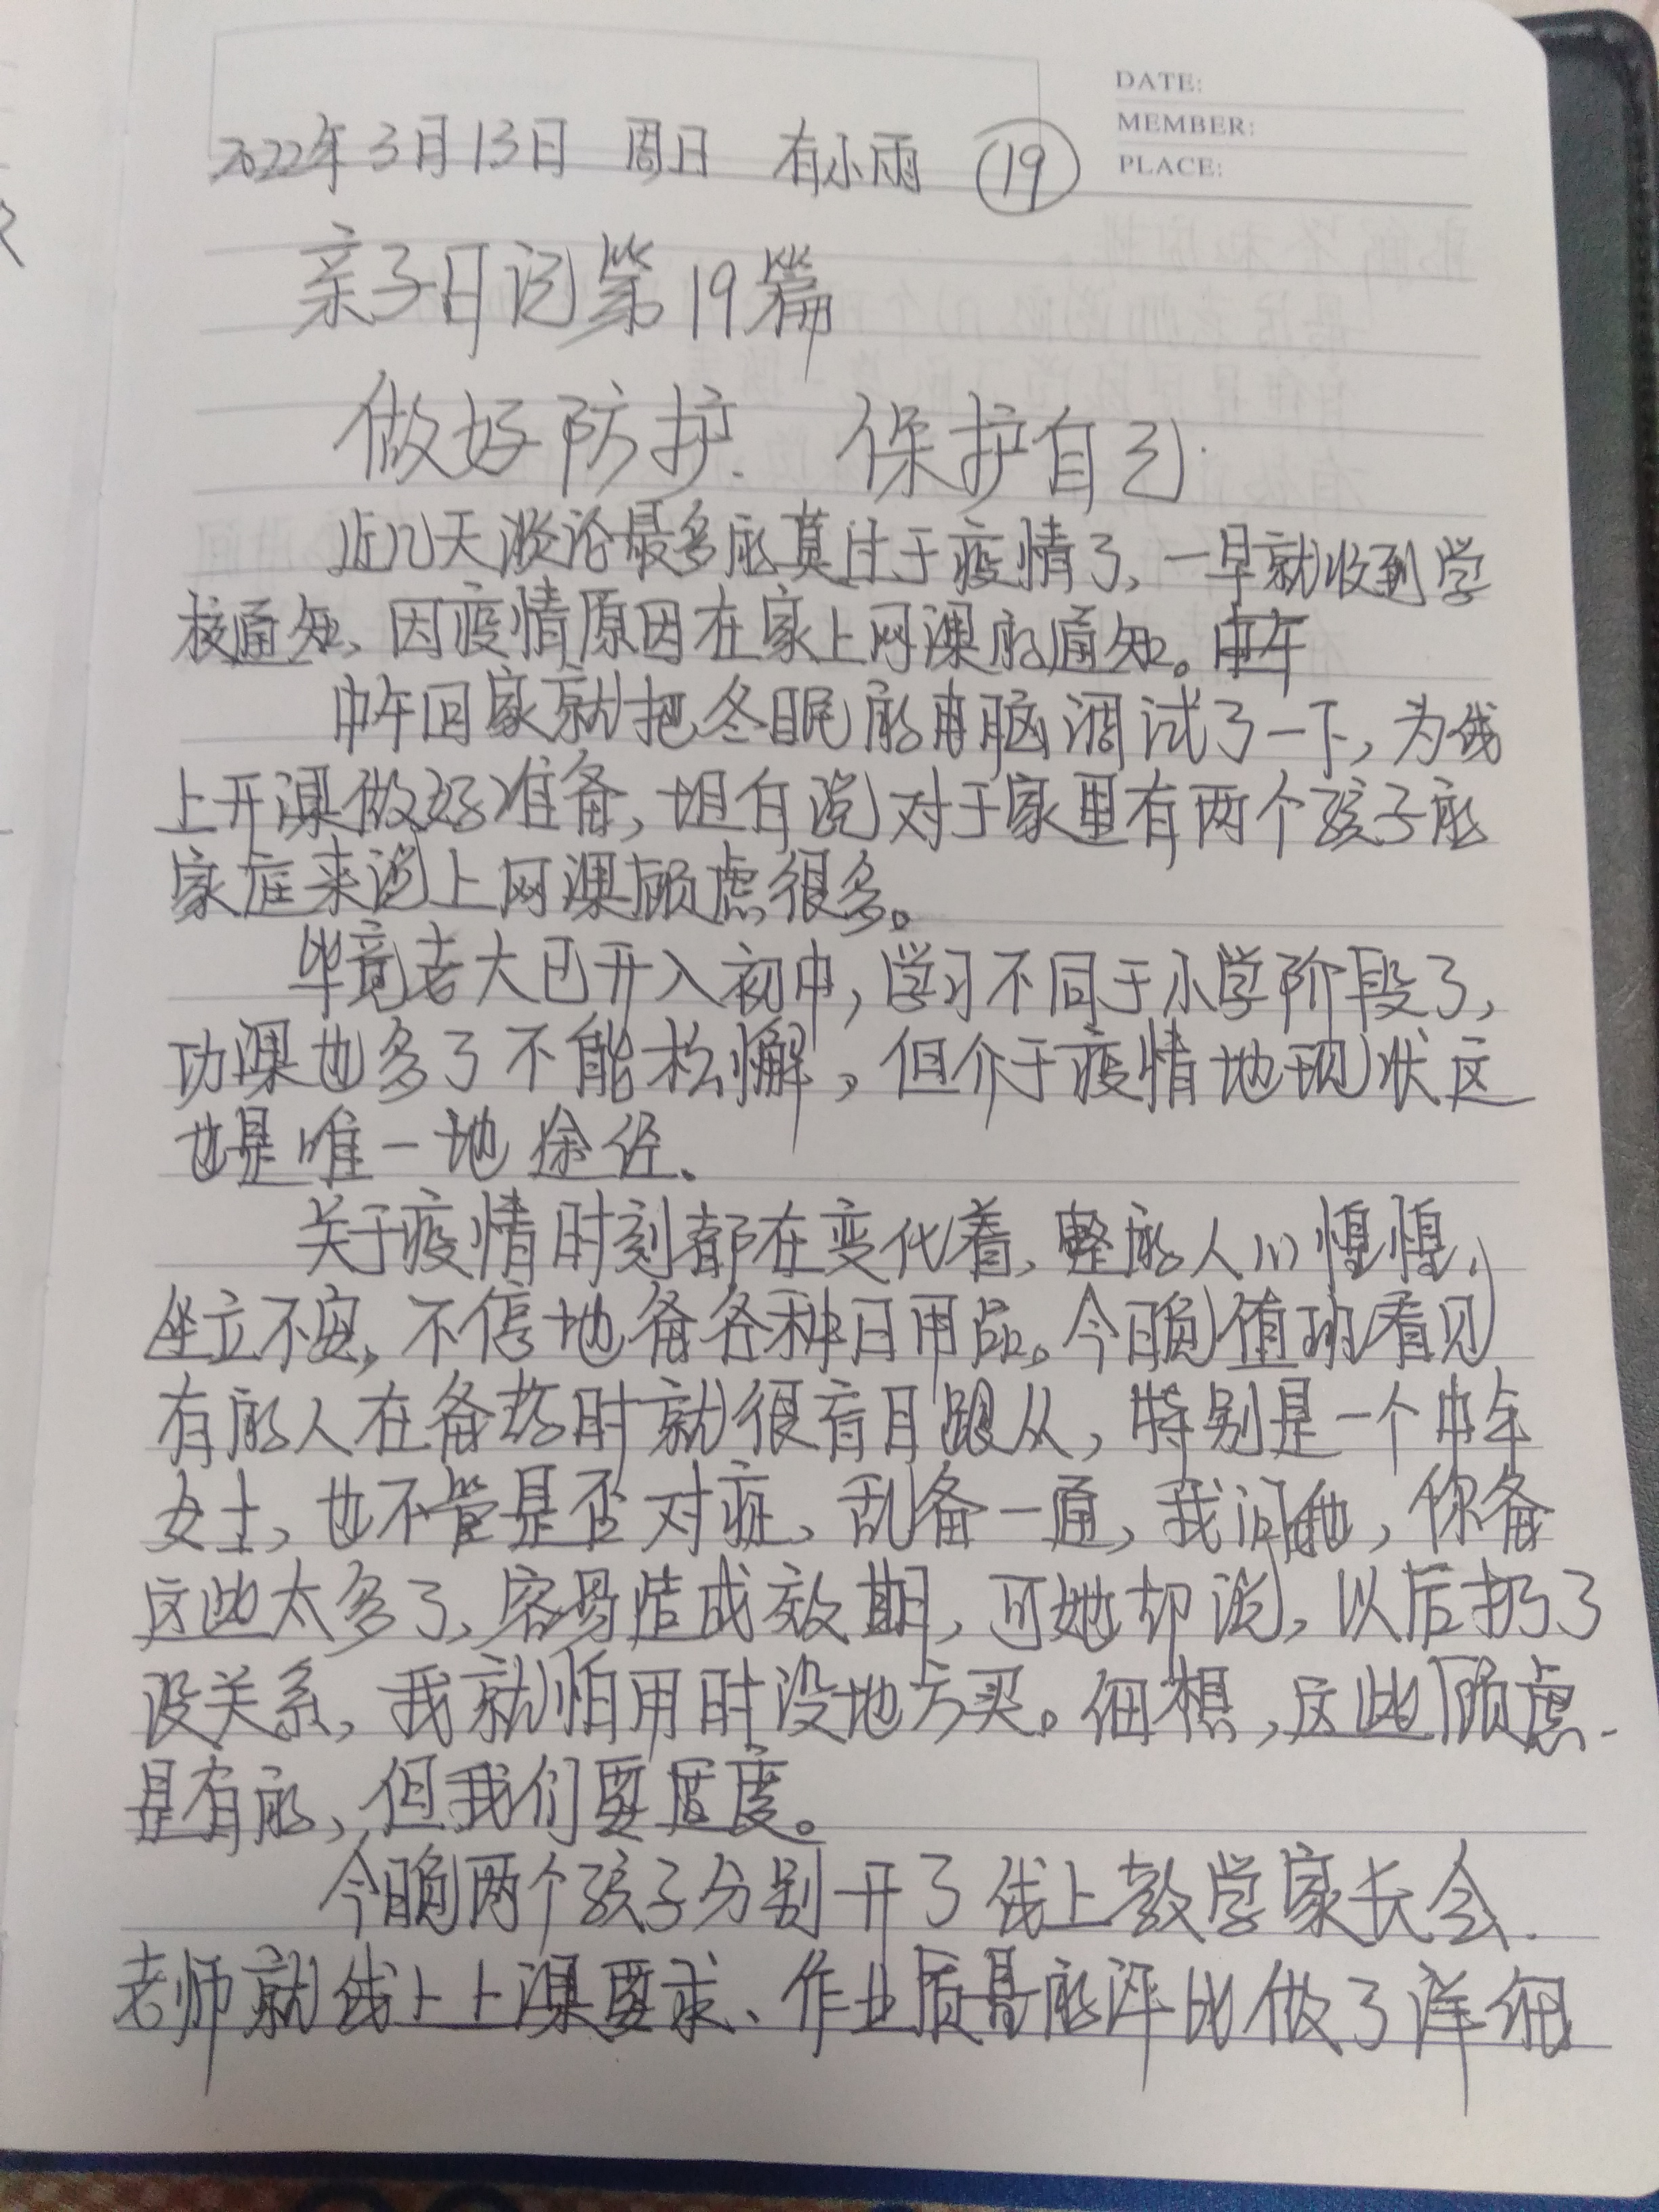 DATE:
MEMBER:
PLACE:
2022年3月13日 周日 有小雨 19
亲子日记第19篇
做好防护. 保护自己.
近几天谈论最多的莫过于疫情了,一早就收到学
校通知、因疫情原因在家上网课的通知。中午
中午回家就把冬眠的电脑调试了一下,为线
上开课做好准备,坦白说对于家里有两个孩子的
家庭来说上网课顾虑很多。
毕竟老大已开入初中,学习不同于小学阶段了,
功课也多了不能松懈,但介于疫情地现状这
也是唯一地途经、
关于疫情时刻都在变化着、整的人心惶惶,
坐立不安,不停地备各种日用品。今晚值班看见
有的人在备药时就很盲目跟从,特别是一个中年
女士,也不管是否对症、乱备一通,我问她,你备
这些太多了、容易造成效期,可她却说,以后扔了
没关系、我就怕用时没地方买。细想,这些顾虑
是有的,但我们要适度。
今晚两个孩子分别开了线上教学家长会.
老师就线上上课要求、作业质量的评比做了详细